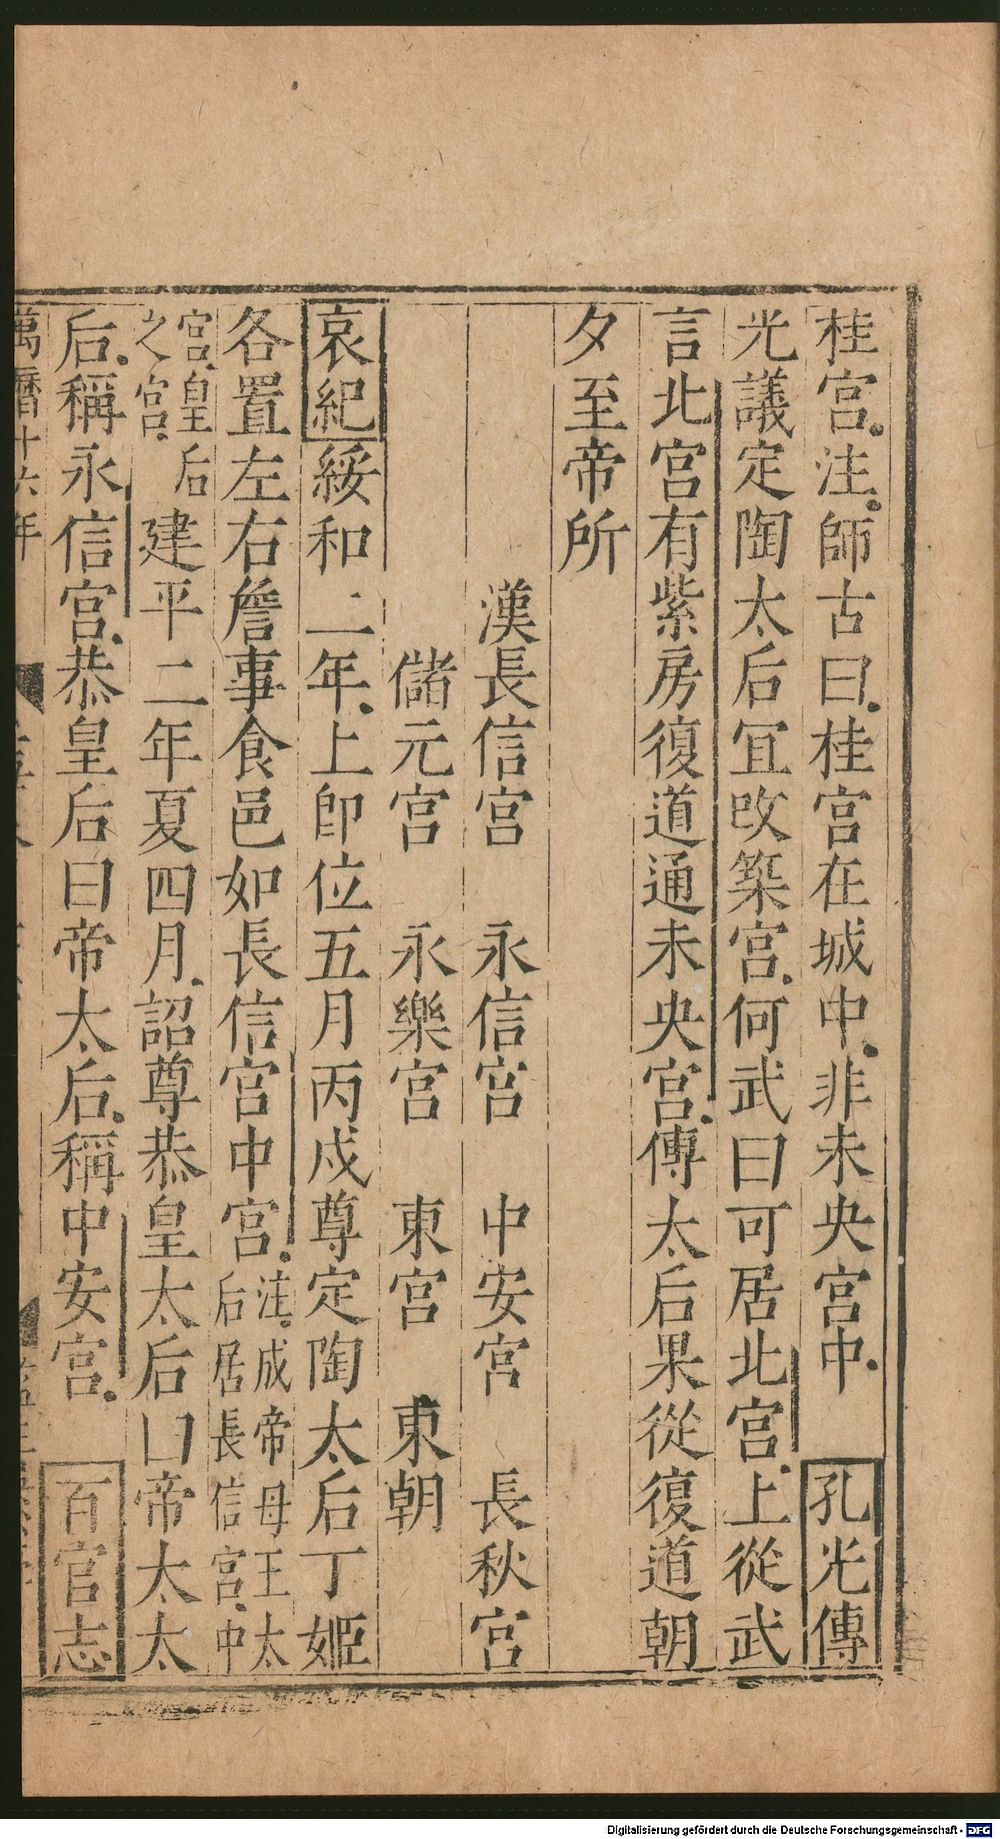 桂宮注師古曰桂宮在城中非未央宮中　孔光傳
光議定陶太后宜改築宮何武曰可居北宮上從武
言北宮有紫房復道通未央宮傳太后果從復道朝
夕至帝所
漢長信宮　永信宮　中安宮　長秋宮
儲元宮　永樂宮　東宮　東朝
哀紀綏和二年上卽位五月丙戌尊定陶太后丁姬
各置左右詹事食邑如長信宮中宮注成帝母王太后居長信宮中
宮皇后之宮　建平二年夏四月詔尊恭皇太后曰帝太太
后稱永信宮恭皇后曰帝太后稱中安宮　百官志
萬曆十六年
Digitalisierung gefördert durch die Deutsche Forschungsgemeinschaft - DFG